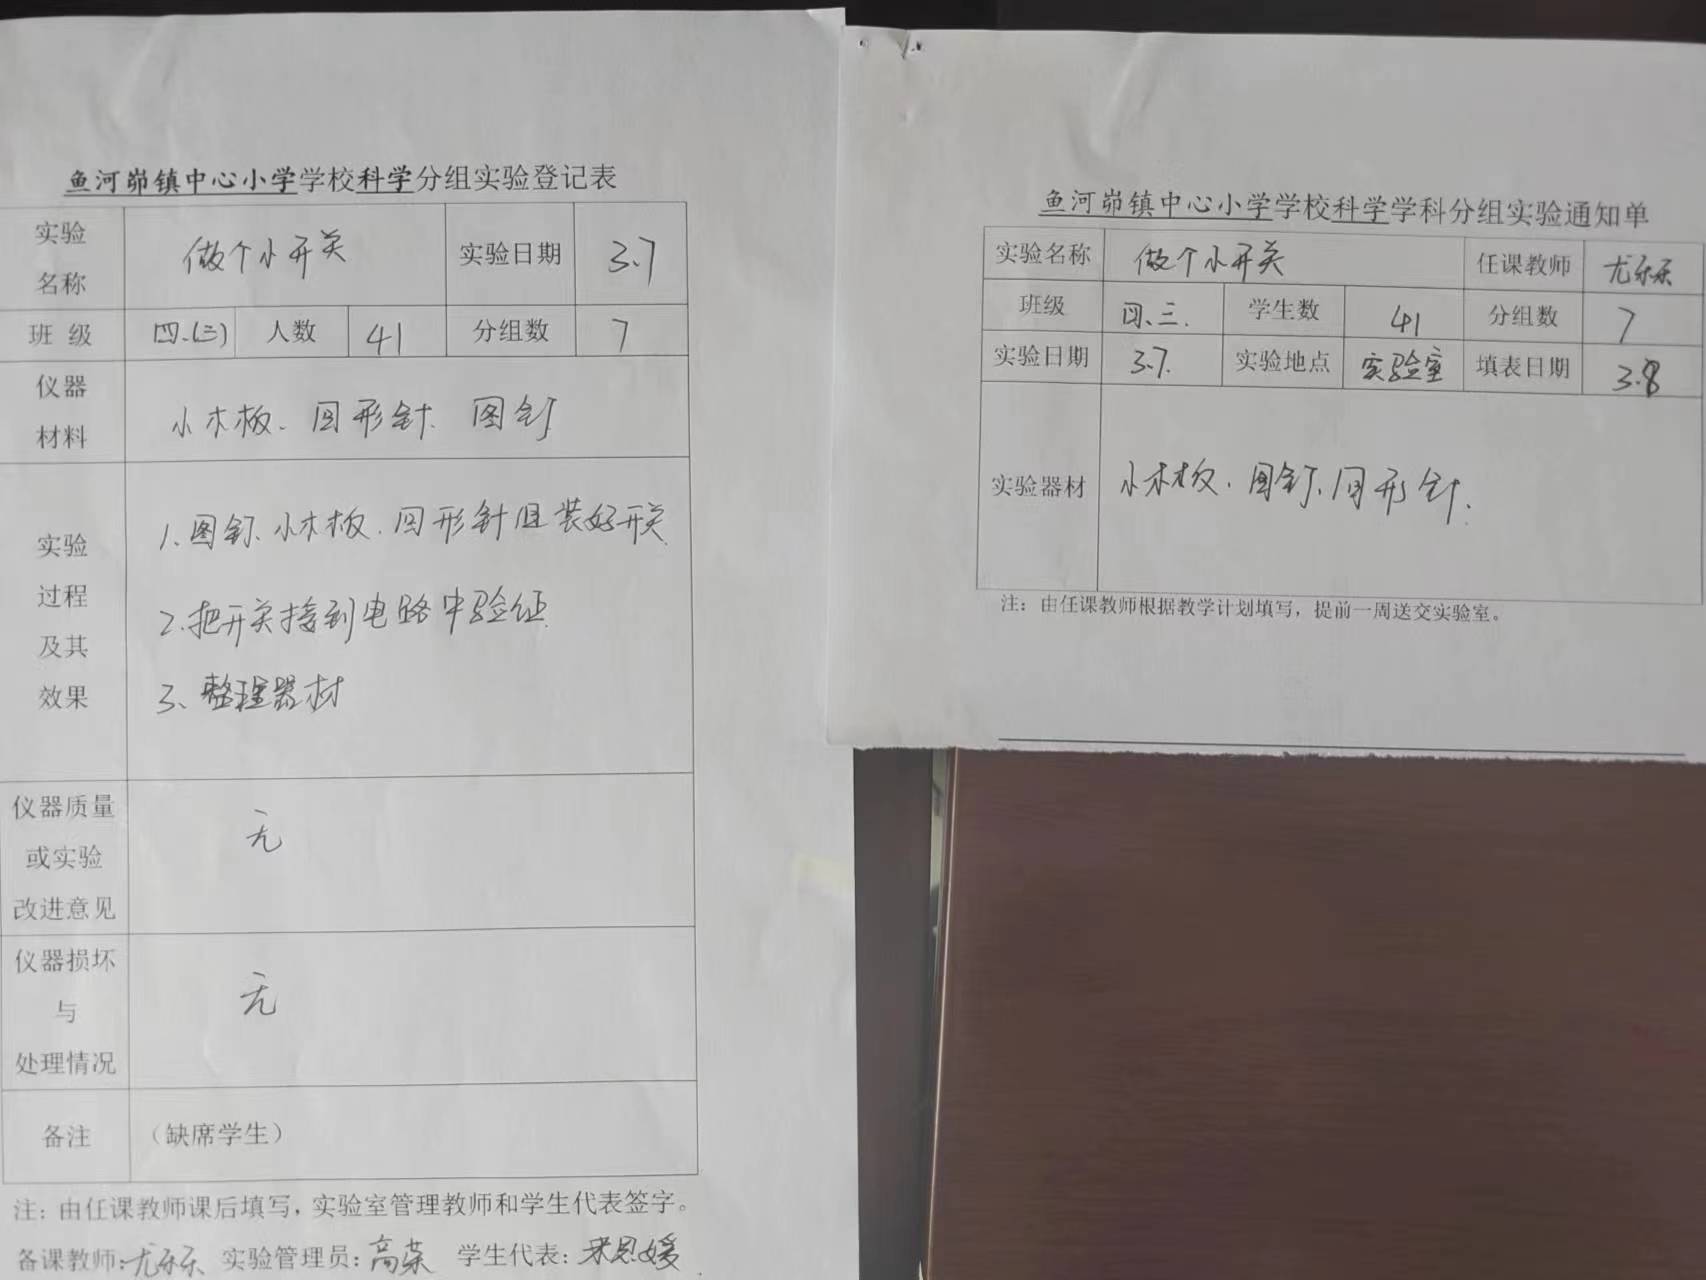 鱼河峁镇中心小学学校科学分组实验登记表
实验名称 做个小开关 实验日期 3.7
班 级 四.(三) 人数 41 分组数 7
仪器材料 小木板、回形针、图钉
实验过程及其效果
1、图钉、小木板、回形针组装好开关
2、把开关接到电路中验证
3、整理器材
仪器质量或实验改进意见 无
仪器损坏与处理情况 无
备注 （缺席学生）
注：由任课教师课后填写，实验室管理教师和学生代表签字。
备课教师：尤乐乐 实验管理员：高荣 学生代表：
鱼河峁镇中心小学学校科学学科分组实验通知单
实验名称 做个小开关 任课教师 尤乐乐
班级 四、三. 学生数 41 分组数 7
实验日期 3.7. 实验地点 实验室 填表日期 3.8
实验器材 小木板、图钉、回形针.
注：由任课教师根据教学计划填写，提前一周送交实验室。